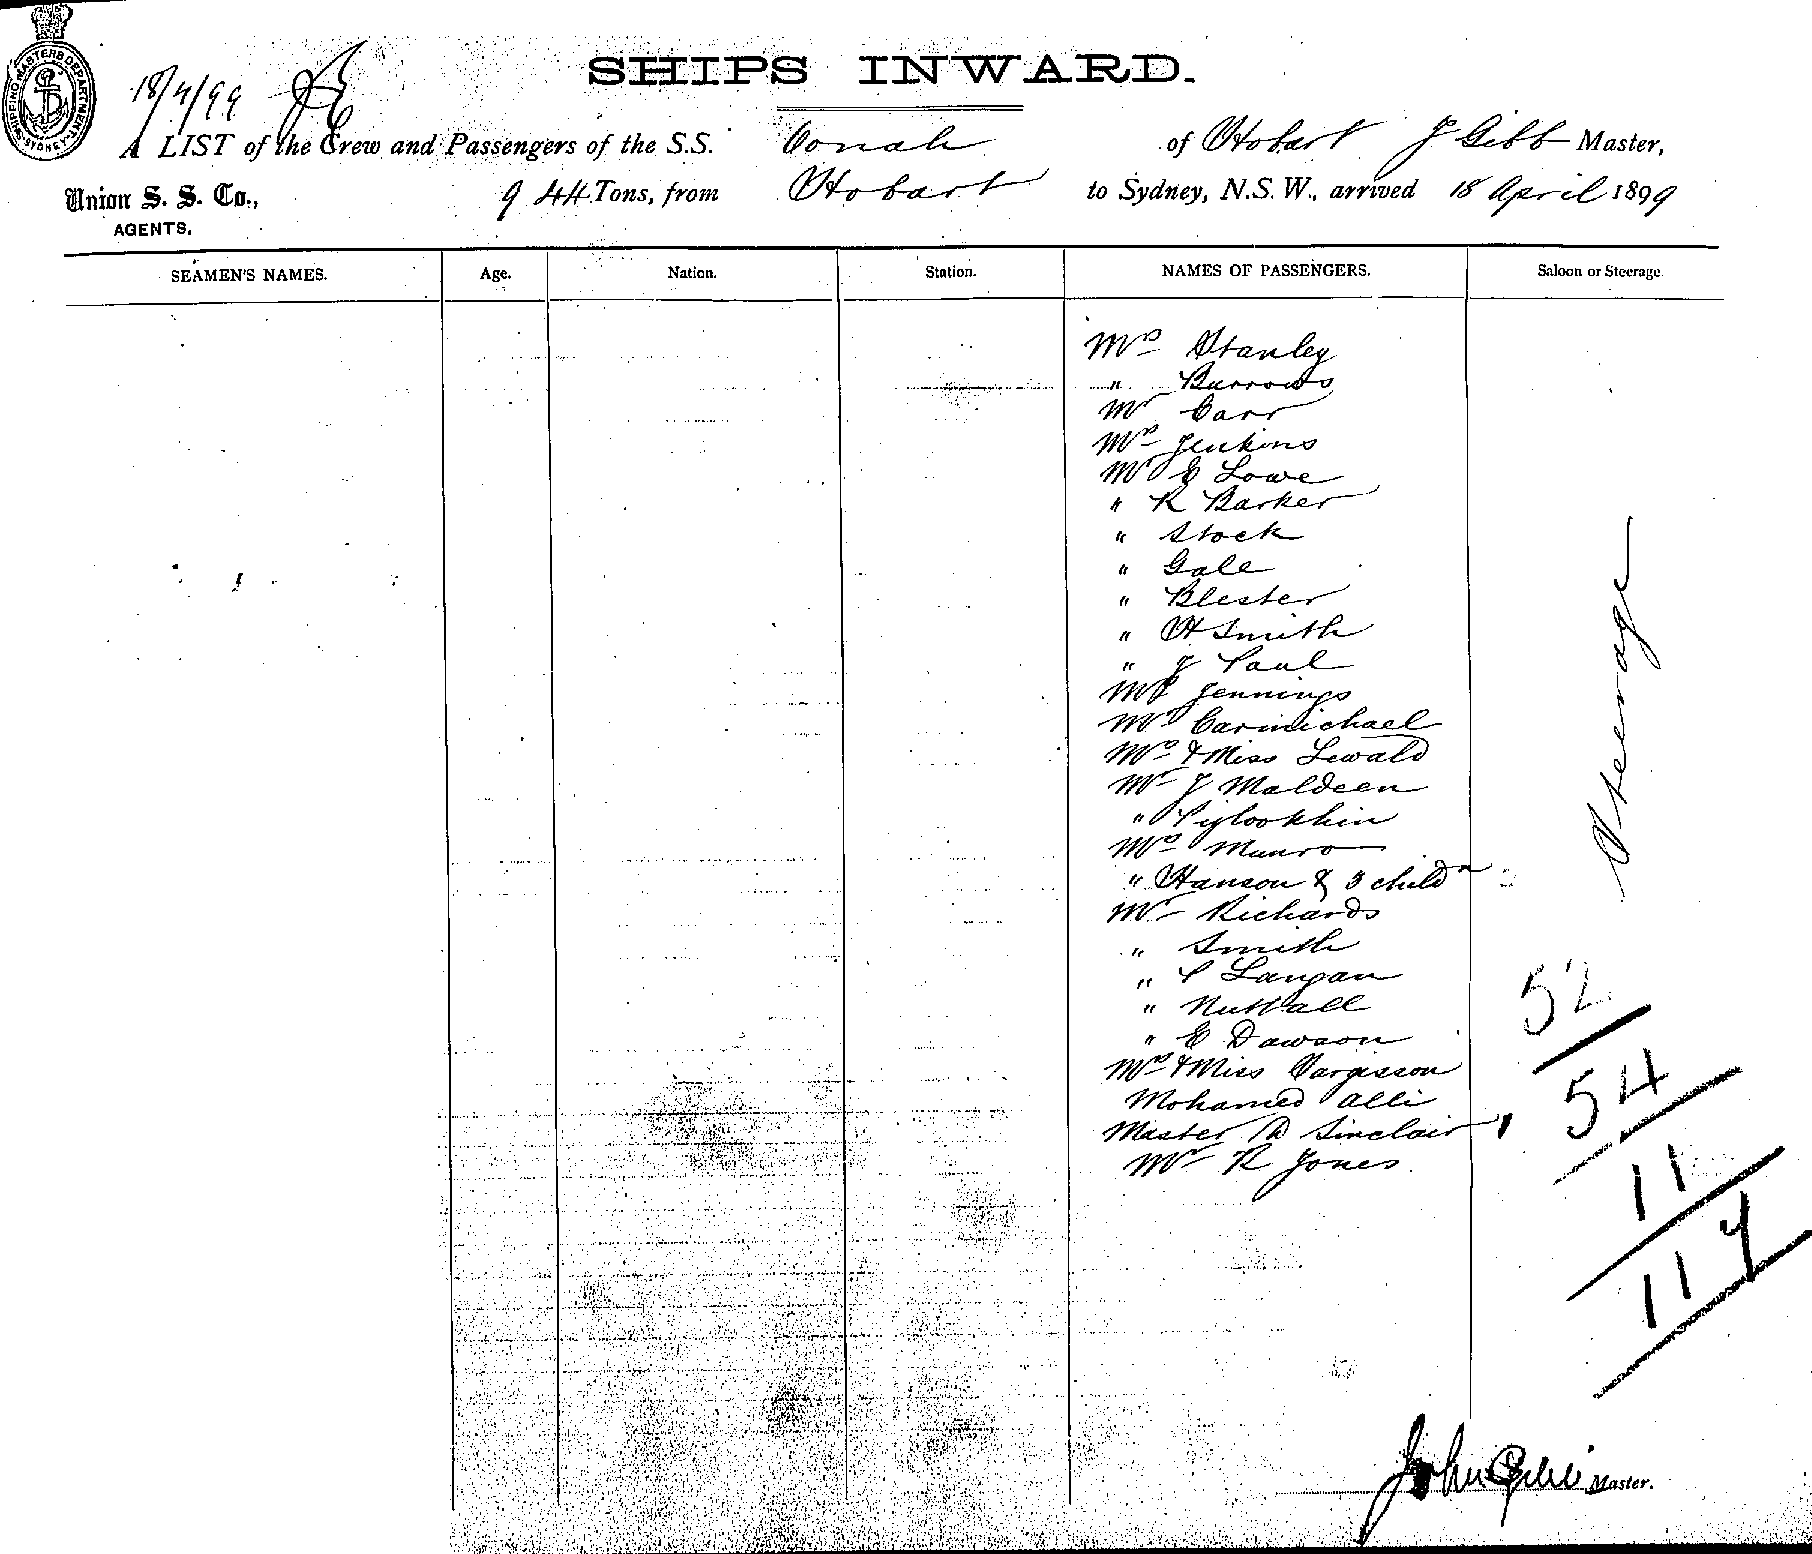 SHIPPING MASTERS DEPARTMENT SYDNEY
18/4/99
SHIPS INWARD.
A LIST of the Crew and Passengers of the S.S. Oonah of Hobart J Gibb Master,
Union S. S. Co., AGENTS.
944 Tons, from Hobart to Sydney, N.S.W., arrived 18 April 1899
SEAMEN'S NAMES. Age. Nation. Station. NAMES OF PASSENGERS. Saloon or Steerage.
Mrs Stanley
" Burrows
Mr Carr
Mrs Jenkins
Mr E Lowe
" R Barker
" Stock
" Gale
" Blester
" H Smith
" J Paul
Jennings
Mr Carmichael
Mrs & Miss Lewald
Mr J Maldeen
"
Mrs Munro
" Hanson & 3 childn
Mr Richards
" Smith
" P Langan
" Nuttall
" E Dawson
Mrs & Miss Vargisson
Mohamed Alli
Master Sinclair
Mr R Jones.
Steerage
52
54
11
117
John Gibb Master.